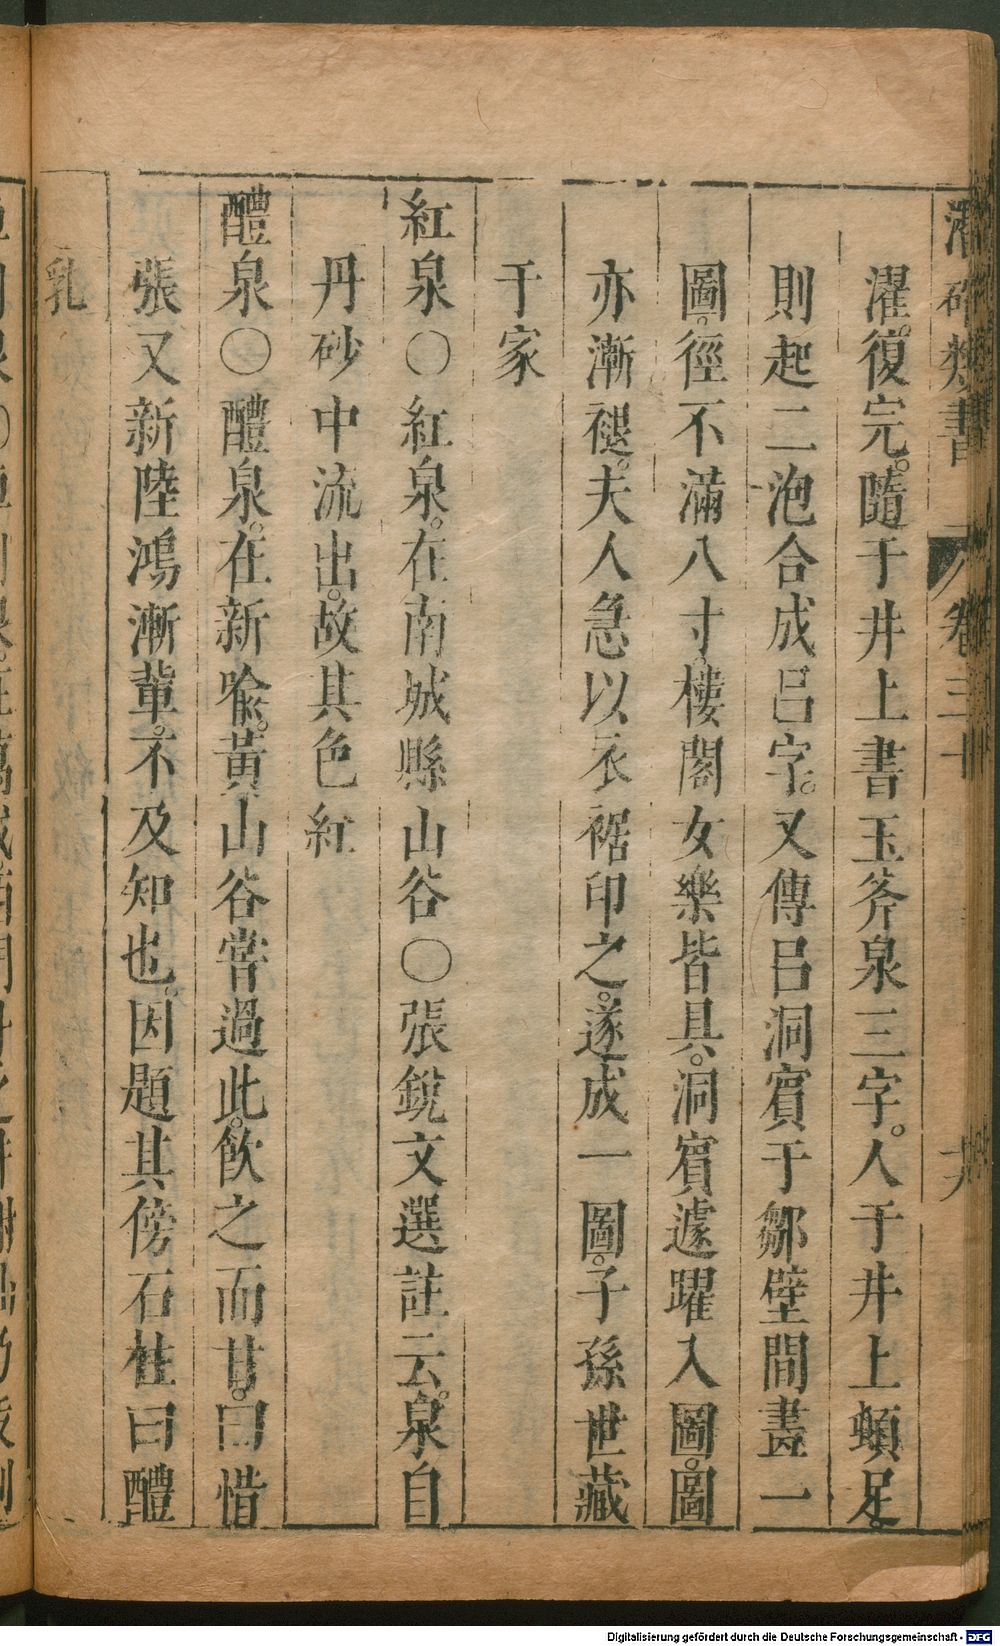 潛確類書 卷三十 十六
濯。復完。隨于井上書玉斧泉三字。人于井上頓足。
則起二泡合成呂字。又傳呂洞賓于鄒壁間畫一
圖。徑不滿八寸。樓閣女樂皆具。洞賓遽躍入圖。圖
亦漸褪。夫人急以衣裾印之。遂成一圖。子孫世藏
于家
紅泉〇紅泉。在南城縣山谷〇張銳文選註云。泉自
丹砂中流出。故其色紅
醴泉〇醴泉。在新喻。黃山谷嘗過此。飲之而甘。曰惜
張又新陸鴻漸輩。不及知也。因題其傍石柱曰醴
乳
Digitalisierung gefördert durch die Deutsche Forschungsgemeinschaft - DFG